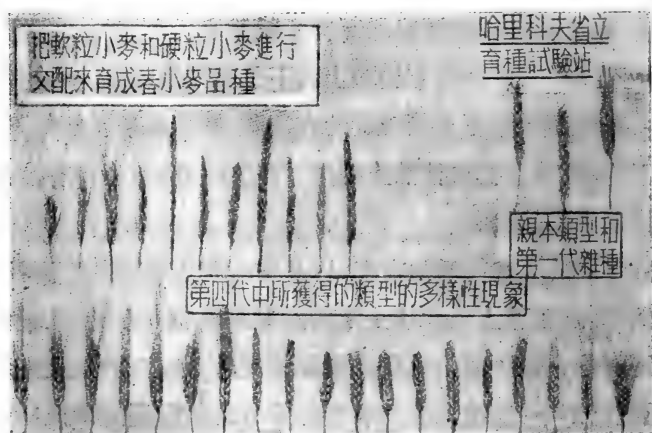 把軟粒小麥和硬粒小麥進行
交配來育成春小麥品種
哈里科夫省立
育種試驗站
親本類型和
第一代雜種
第四代中所獲得的類型的多樣性現象